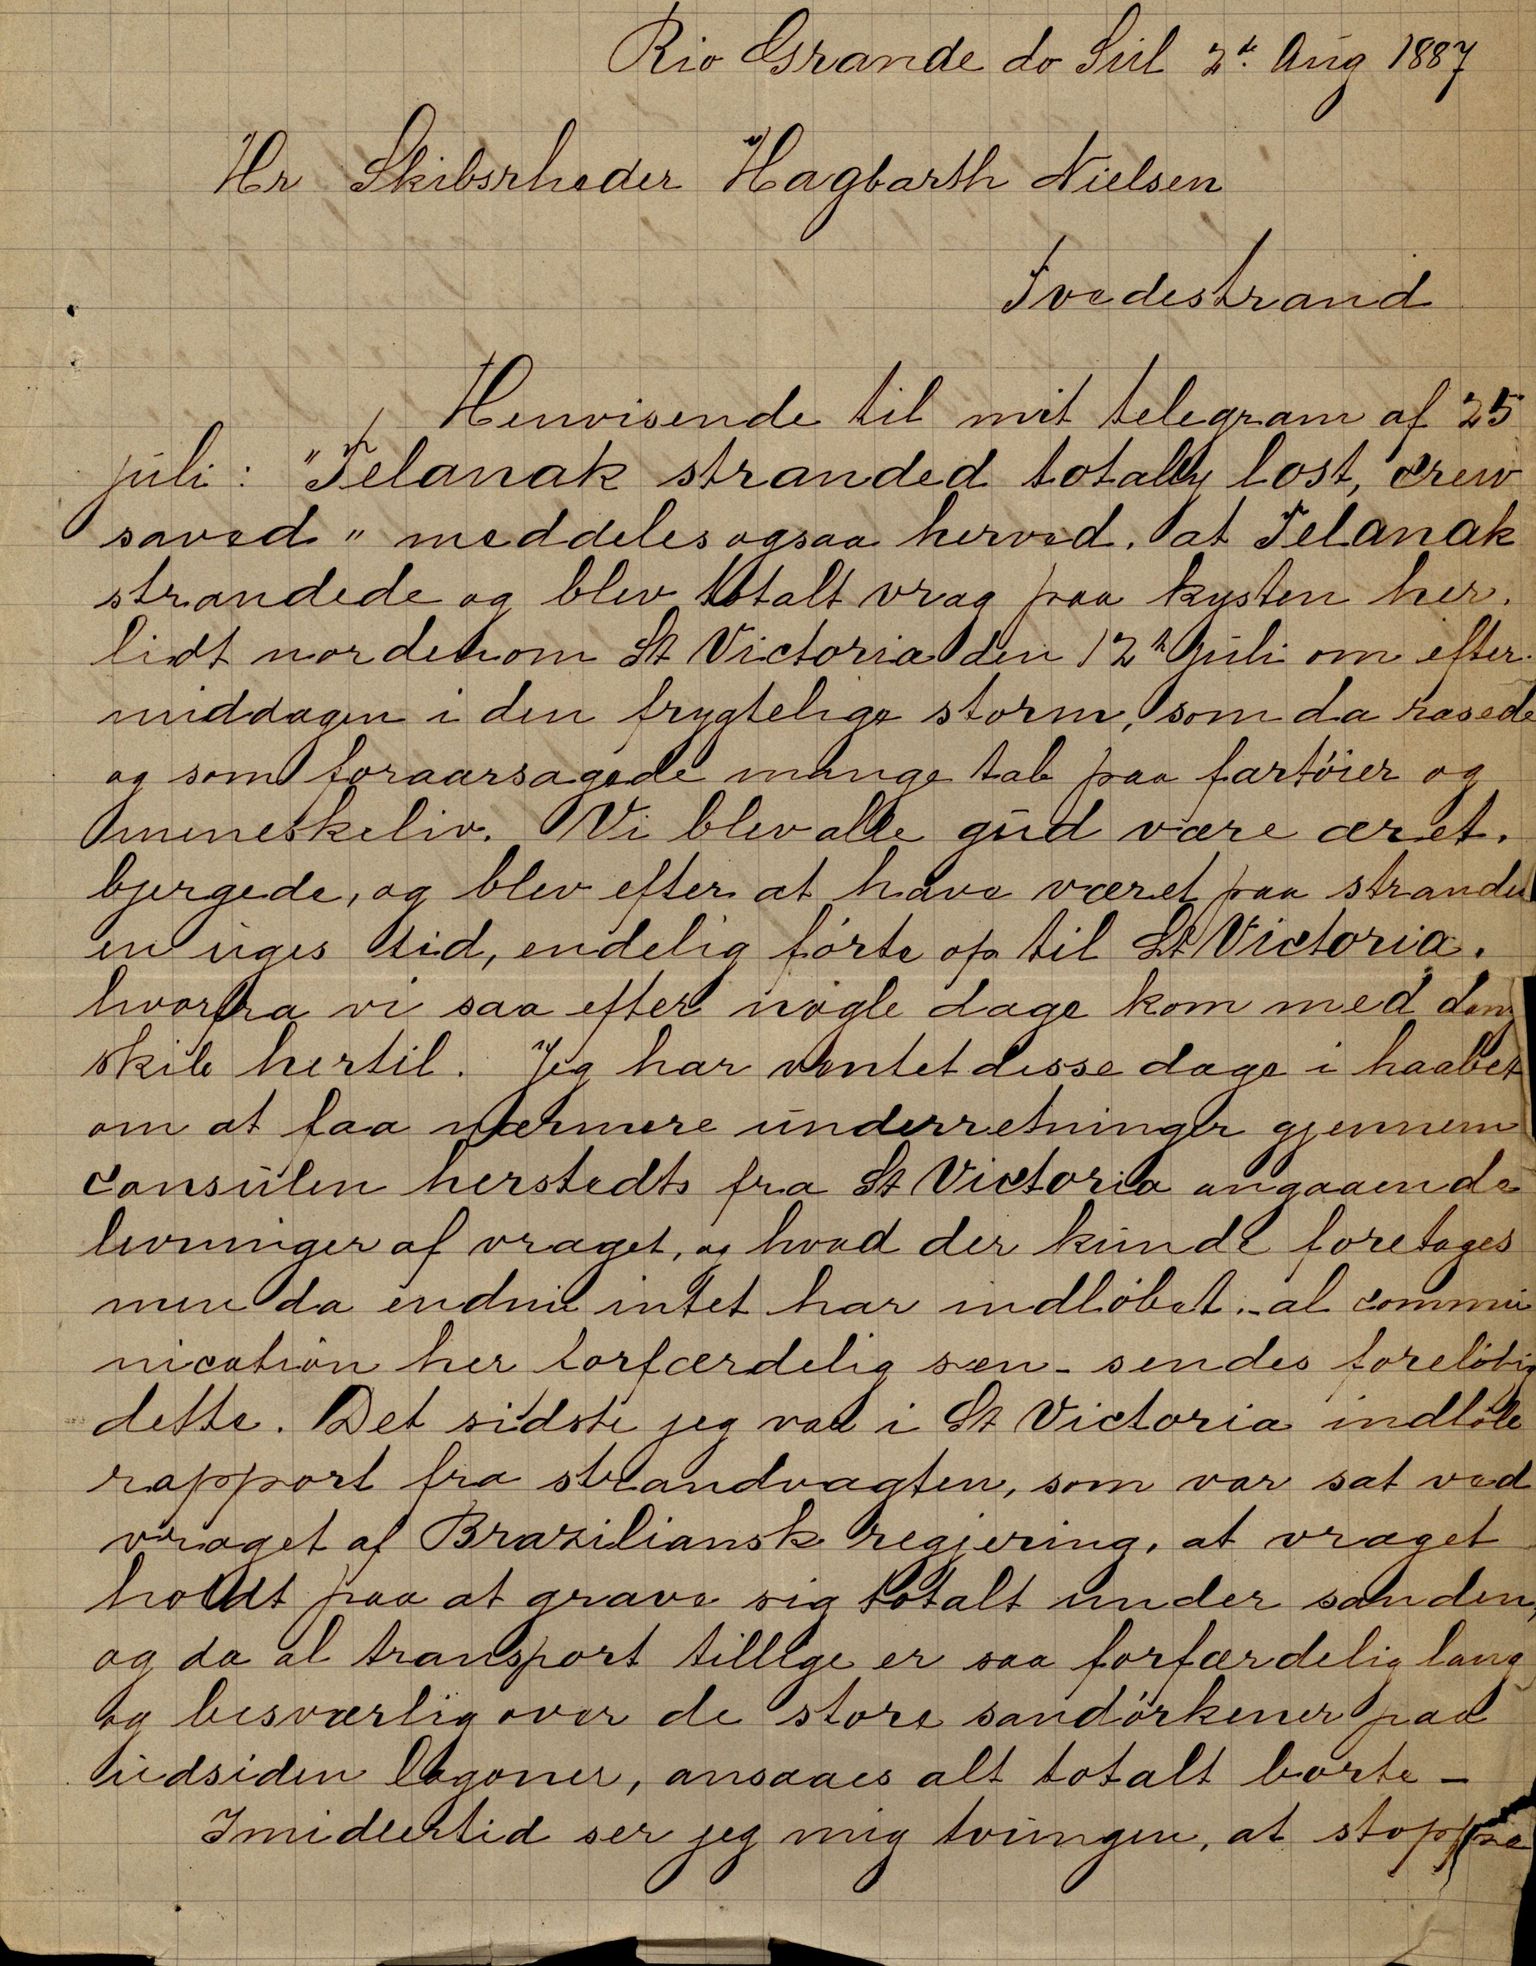 Rio Grande do Sul 2de Aug 1887
Hr Skibsrheder Hagbarth Nielsen
Tvedestrand
Henvisende til mit telegram af 25
juli: "Telanak stranded totally lost, crew
saved" meddeles ogsaa herved. at Telanak
strandede og blev totalt vrag paa kysten her.
lidt nordenom St Victoria den 12te juli om efter-
middagen i den frygtelige storm, som da rasede
og som foraarsagede mange tab paa fartöier og
meneskeliv. Vi blev alle gud være æret.
bjergede, og blev efter at have været paa stranden
en uges tid, endelig förte op til St Victoria.
hvorfra vi saa efter nogle dage kom med damp
skib hertil. Jeg har ventet disse dage i haabet
om at faa nærmere underretninger gjennem
consulen herstedts fra St Victoria angaaende
levninger af vraget, og hvad der kunde foretages
men da endnu intet har indlöbet - al commu
nication her forfærdelig sen - sendes forelöbig
dette. Det sidste jeg var i St Victoria indlöb
rapport fra strandvagten, som var sat ved
vraget af Braziliansk regjering, at vraget
holdt paa at grave sig totalt under sanden,
og da al transport tillige er saa forfærdelig lang
og besværlig over de store sandörkener paa
udsiden lagoner, ansaaes alt totalt borte -
Imidlertid ser jeg mig tvungen, at stoppe